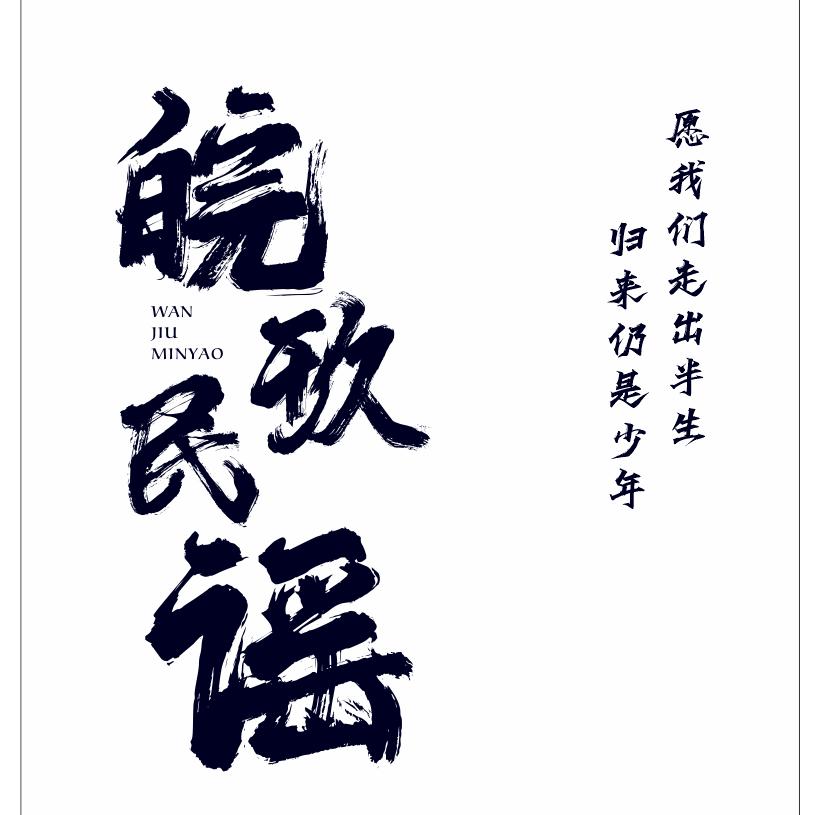 皖玖民谣
WAN
JIU
MINYAO
愿我们走出半生
归来仍是少年